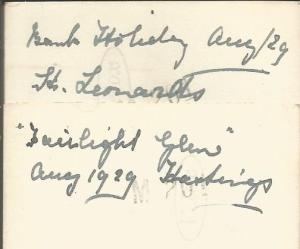 Bank Holiday Aug/29
St. Leonards
"Fairlight Glen"
Aug 1929 Hastings